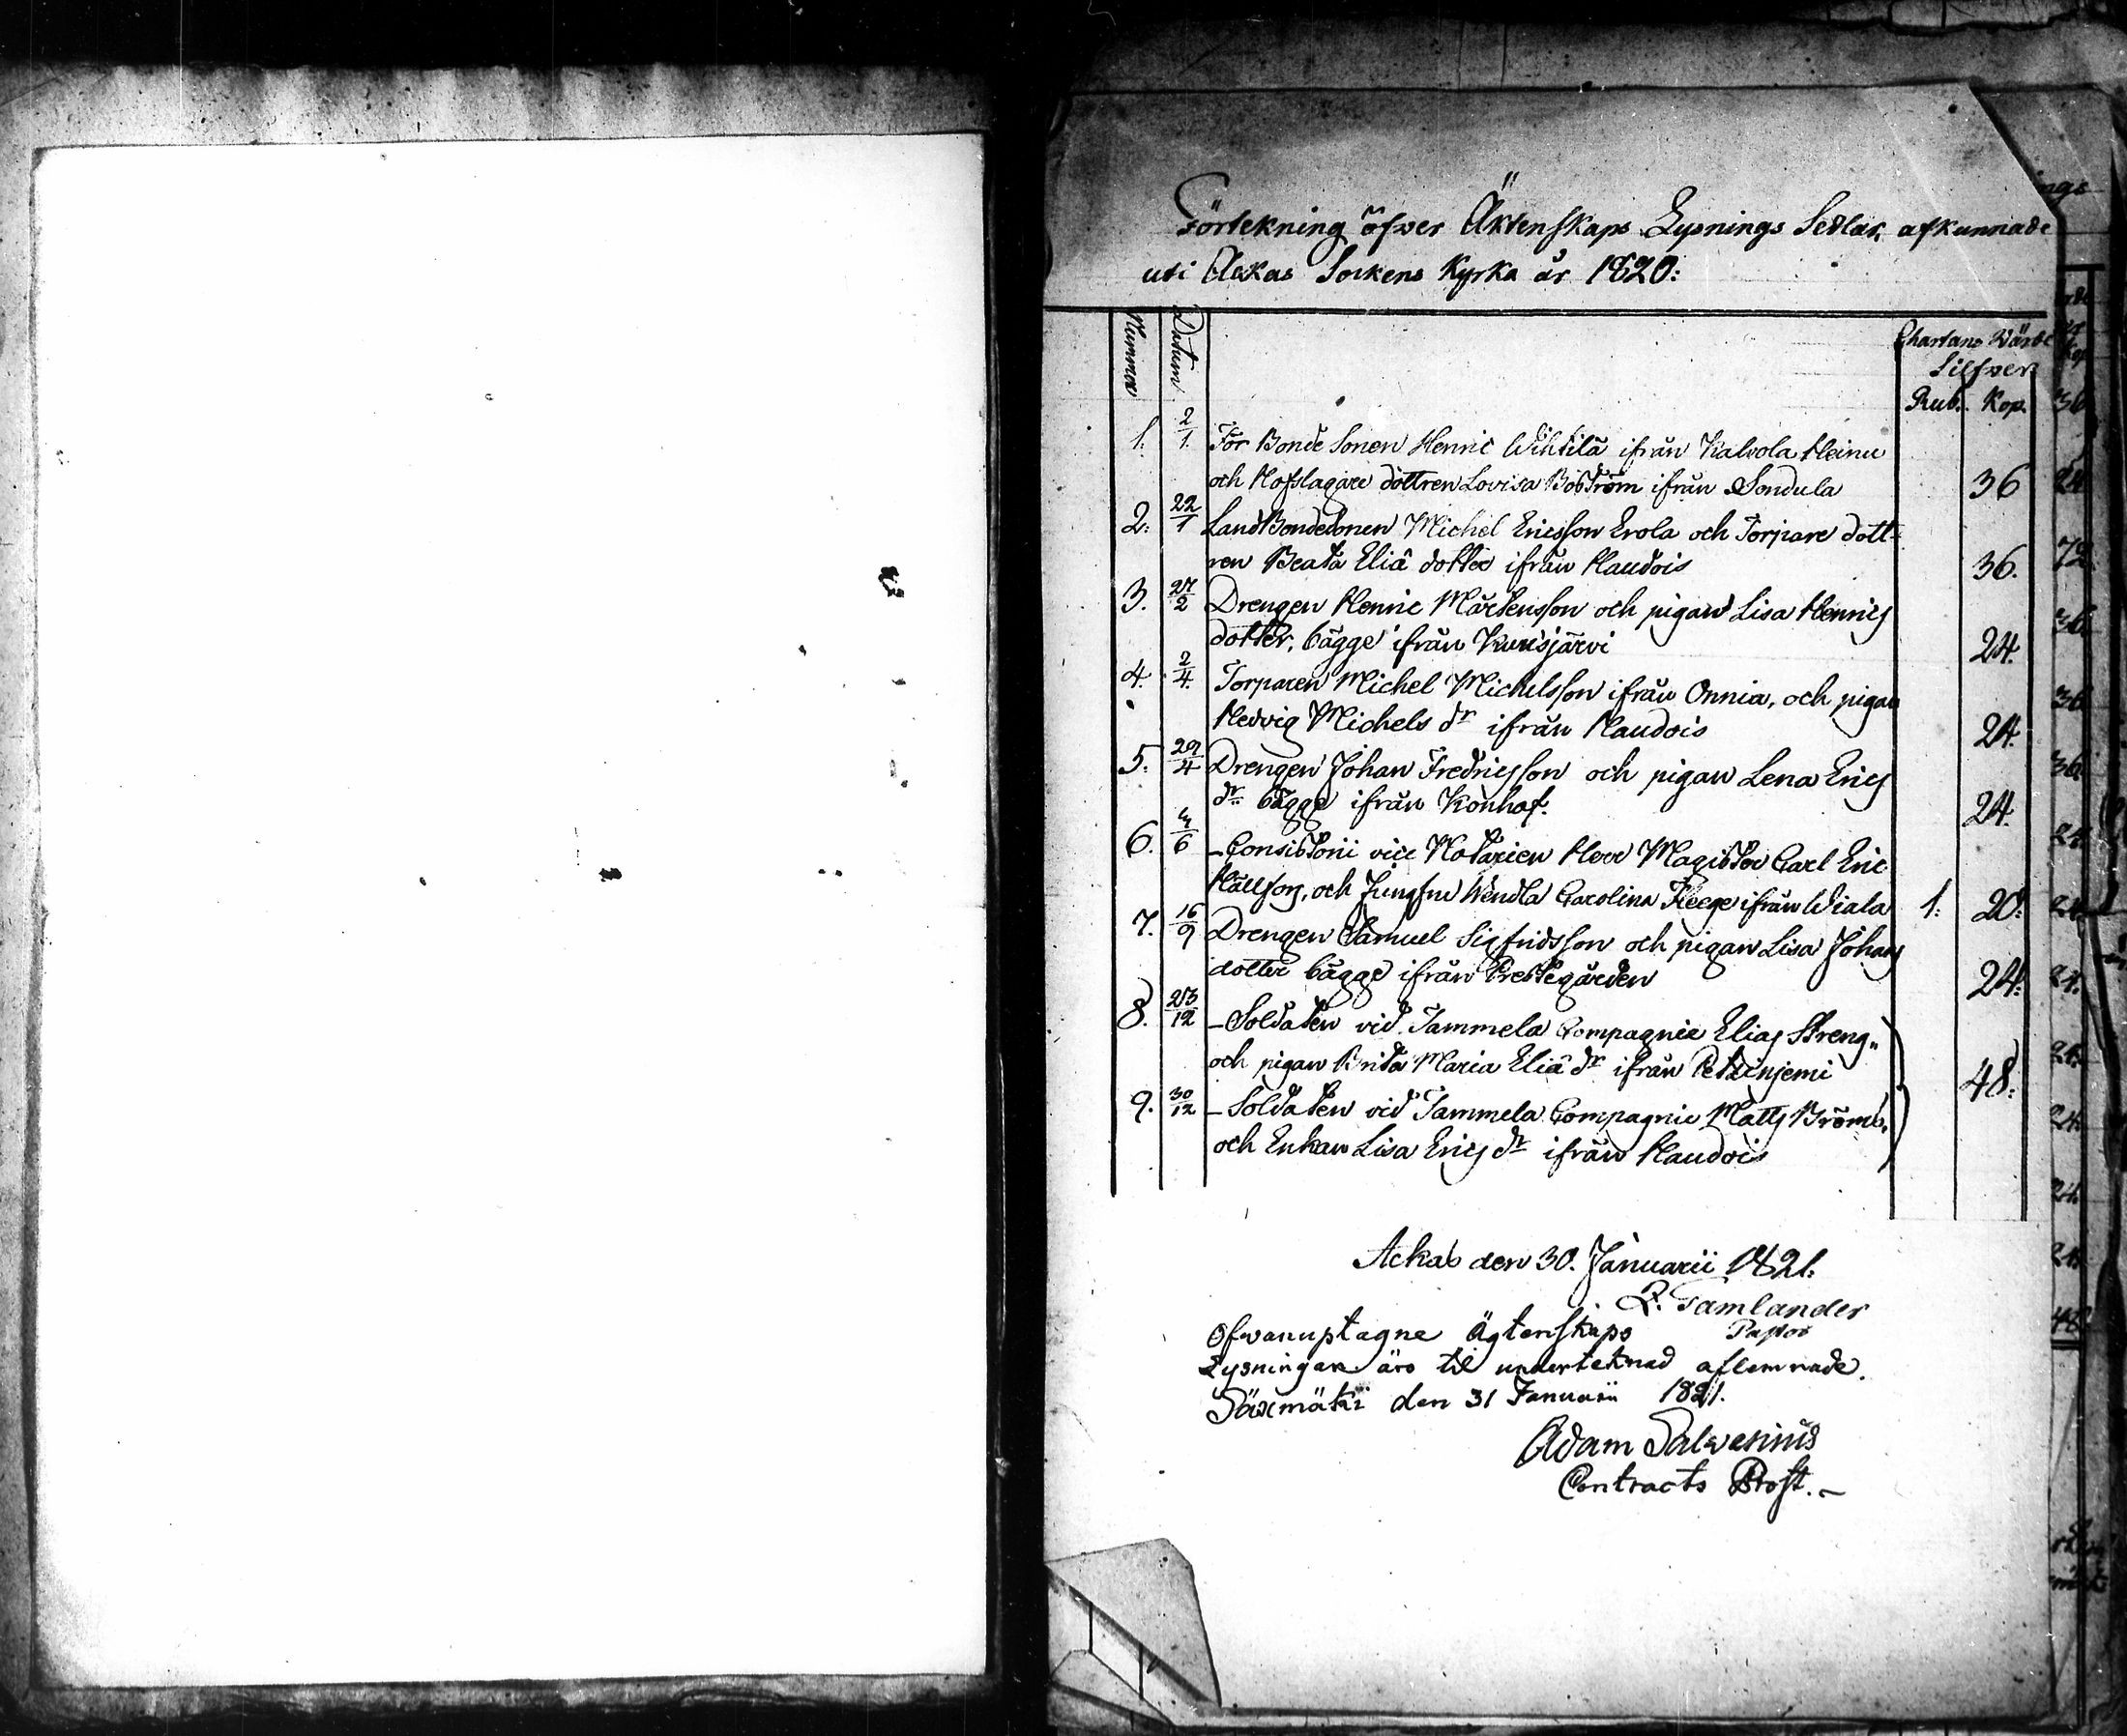 Förtekning öfver Äktenskaps Lysnings Sedlar, afkunnade
uti Ackas Sockens Kyrka år 1820:
Nummer Datum Chartans Wärde
Silfver
Rub. Kop.
1. 2/1. För Bonde Sonen Henric Wihtilä ifrån Kalvola Heinu
och Hofslagare dottren Lovisa Boström ifrån Sondula 36
2. 22/1 LandBondesonen Michel Ericsson Erola och Torpare dott-
ren Beata Eliæ dotter ifrån Haudois 36.
3. 27/2 Drengen Henric Mårtensson och pigan Lisa Henrics
dotter, bägge ifrån Kurisjärvi 24.
4. 2/4. Torparen Michel Michelsson ifrån Onnia, och pigan
Hedvig Michels dr ifrån Haudois 24.
5. 29/4 Drengen Johan Fredricsson och pigan Lena Erics
dr. bägge ifrån Konhof. 24.
6. /6 Consistorii vice Notarien Herr Magister Carl Eric
och Jungfru Wendla Carolina ifrån Wiala 1: 20:
7. 16/9 Drengen Samuel Sigfridsson och pigan Lisa Johans
dotter bägge ifrån Prestegården 24:
8. 23/12 Soldaten vid Tammela Compagnie Elias Streng"
och pigan Brita Maria Eliæ dr ifrån 48:
9. 30/12 Soldaten vid Tammela Compagnie Matts Broms.
och Enkan Lisa Erics dr ifrån Haudois
Ackas den 30. Januarii 1821.
Tamlander
Ofvanuptagne Ägtenskaps Pastor
Lysningar äro til underteknad aflemnade.
Säxmäki den 31 Januarii 1821.
Adam Salvenius
Contracts Prost.